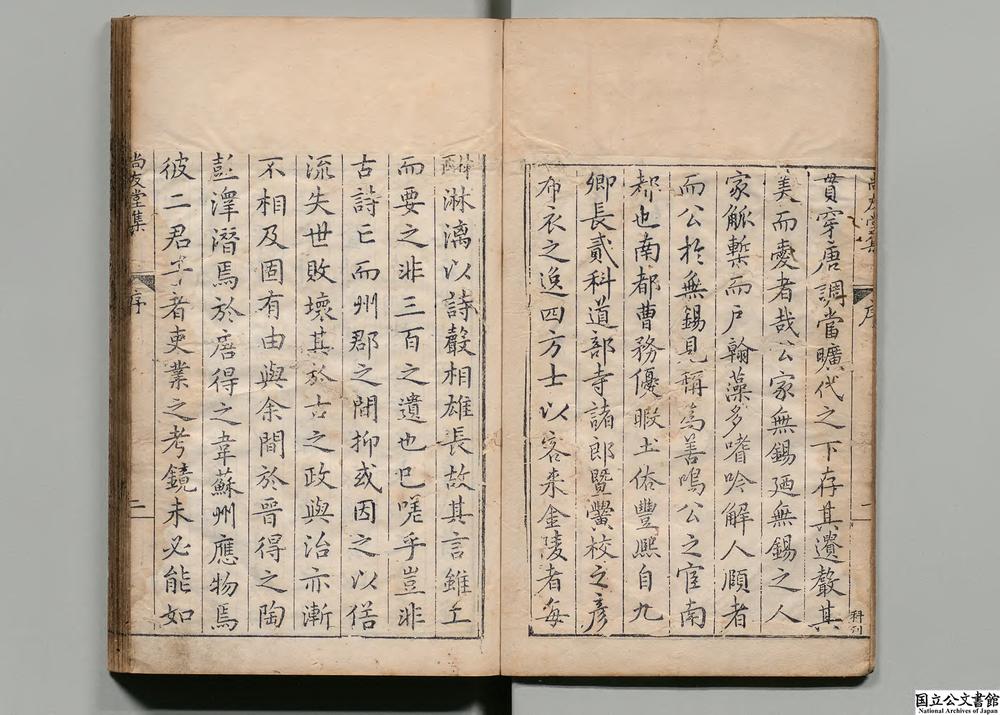 貫穿唐調當曠代之下存其遺聲其
美而憂者哉公家無錫廼無錫之人
家觚槧而戶翰藻多嗜吟解人頤者
而公於無錫見稱為善鳴公之宦南
都也南都曹務優暇土俗豐熈自九
卿長貳科道部寺諸郎暨黌校之彥
布衣之逸四方士以客来金陵者每
酣淋漓以詩聲相雄長故其言雖工
而要之非三百之遺也已嗟乎豈非
古詩亡而州郡之間抑或因之以俈
流失世敗壞其於古之政與治亦漸
不相及固有由與余間於晉得之陶
彭澤潛焉於唐得之韋蘇州應物焉
彼二君子者吏業之考鏡未必能如
尚友堂集
序
一
科刊
尚友堂集
序
二
国立公文書館
National Archives of Japan